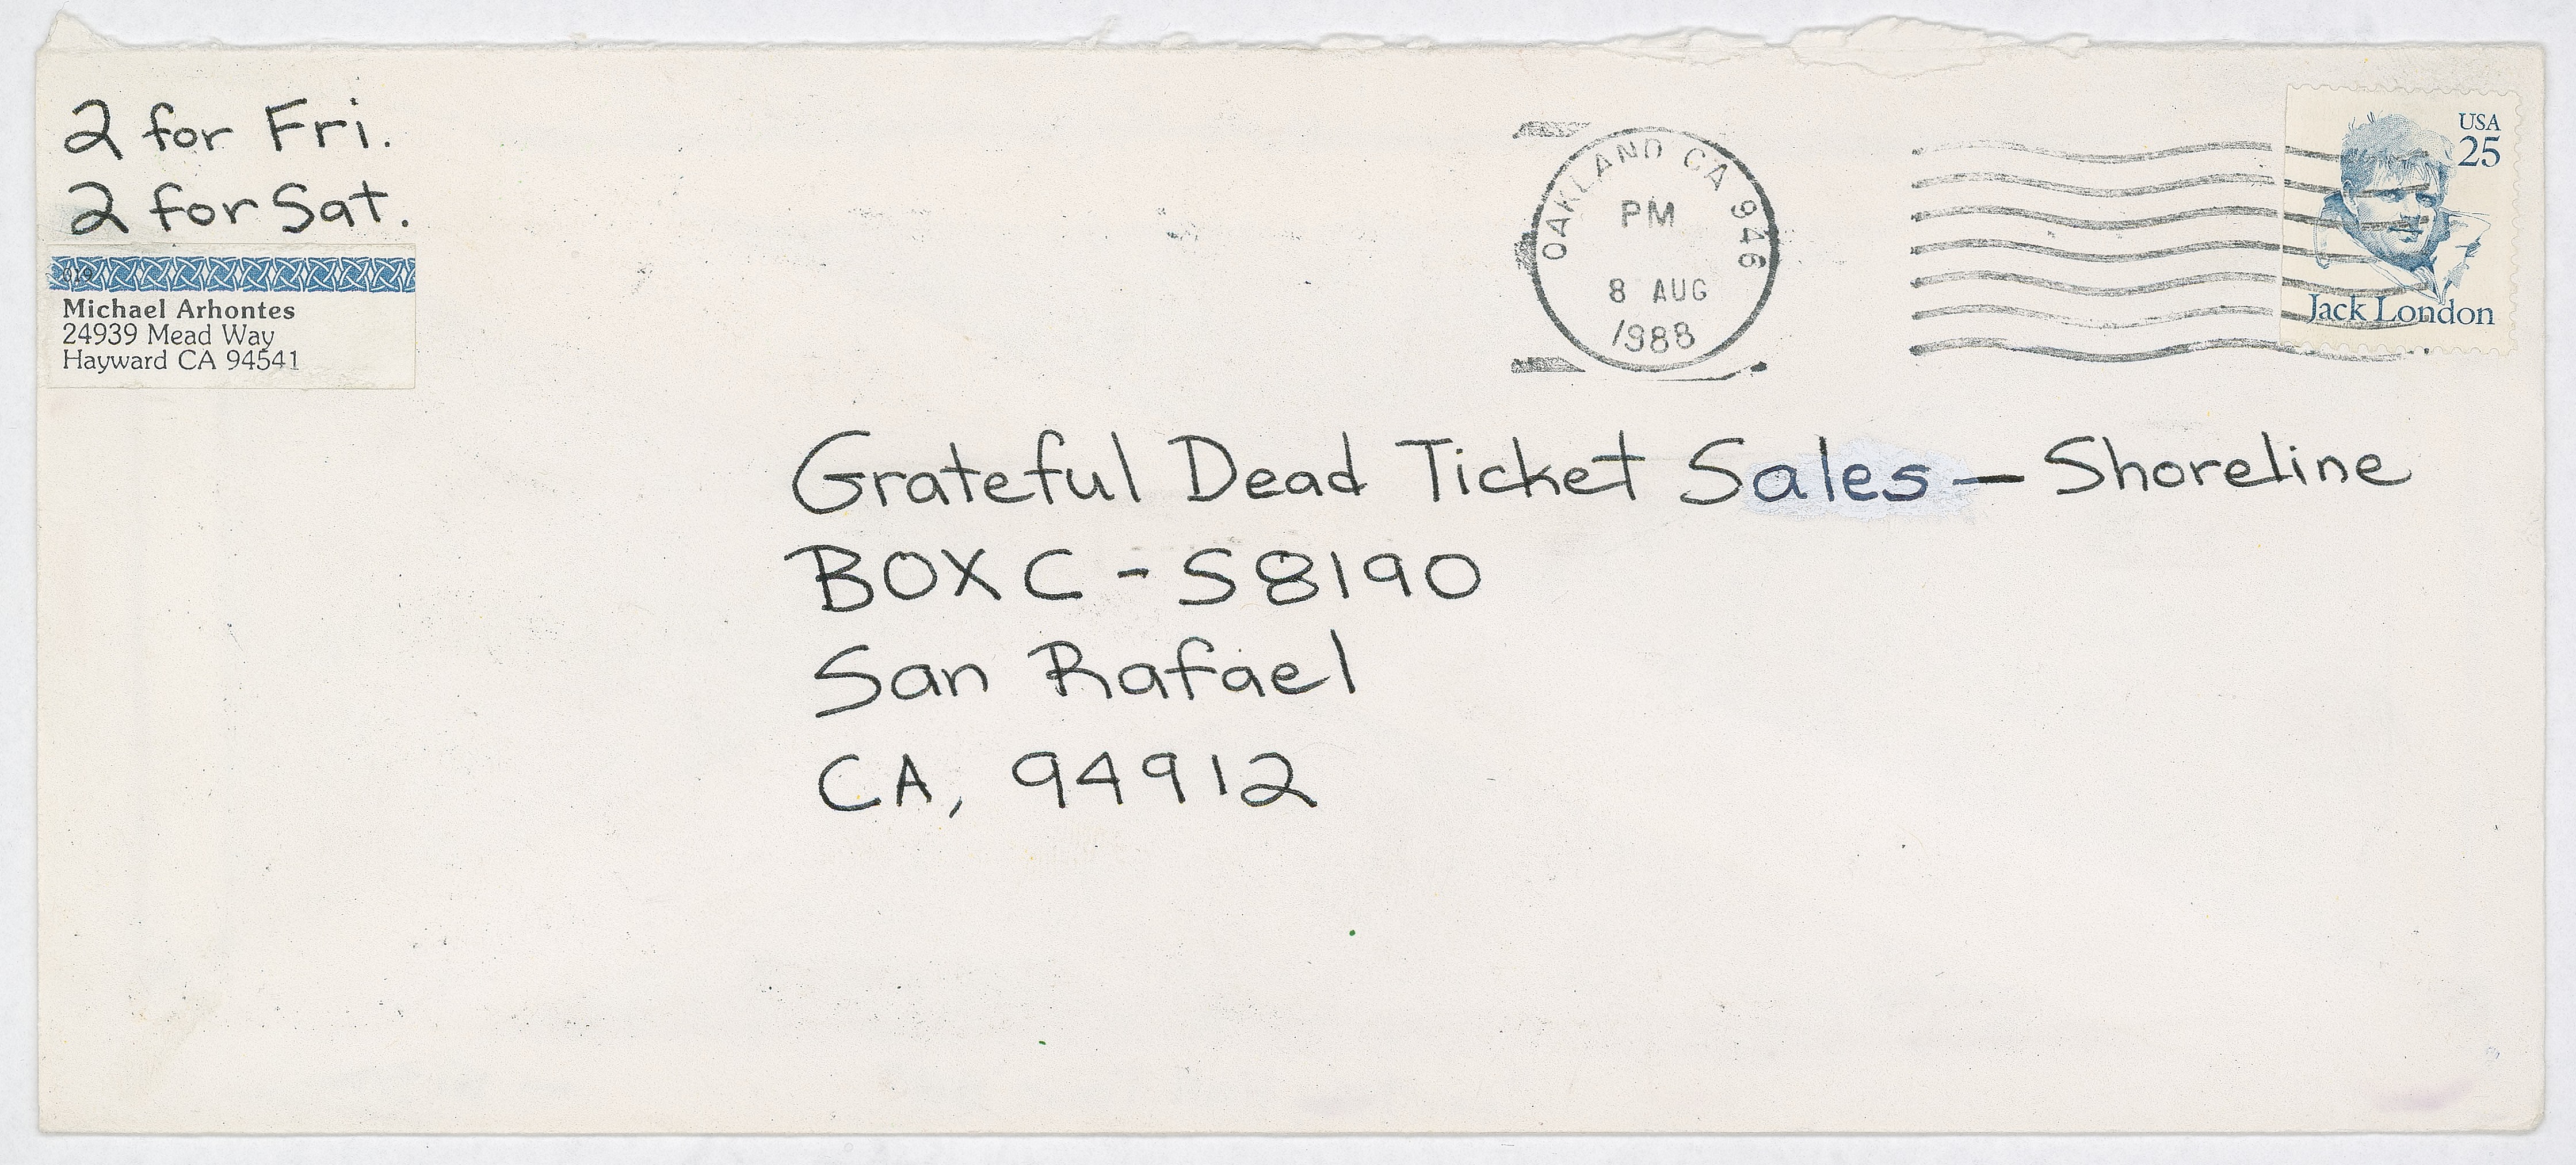 2 for Fri.
2 for Sat.
019
Michael Arhontes
24939 Mead Way
Hayward CA 94541
OAKLAND CA 946
PM
8 AUG
1988
USA
25
Jack London
Grateful Dead Ticket Sales — Shoreline
BOX C - S8190
San Rafael
CA, 94912